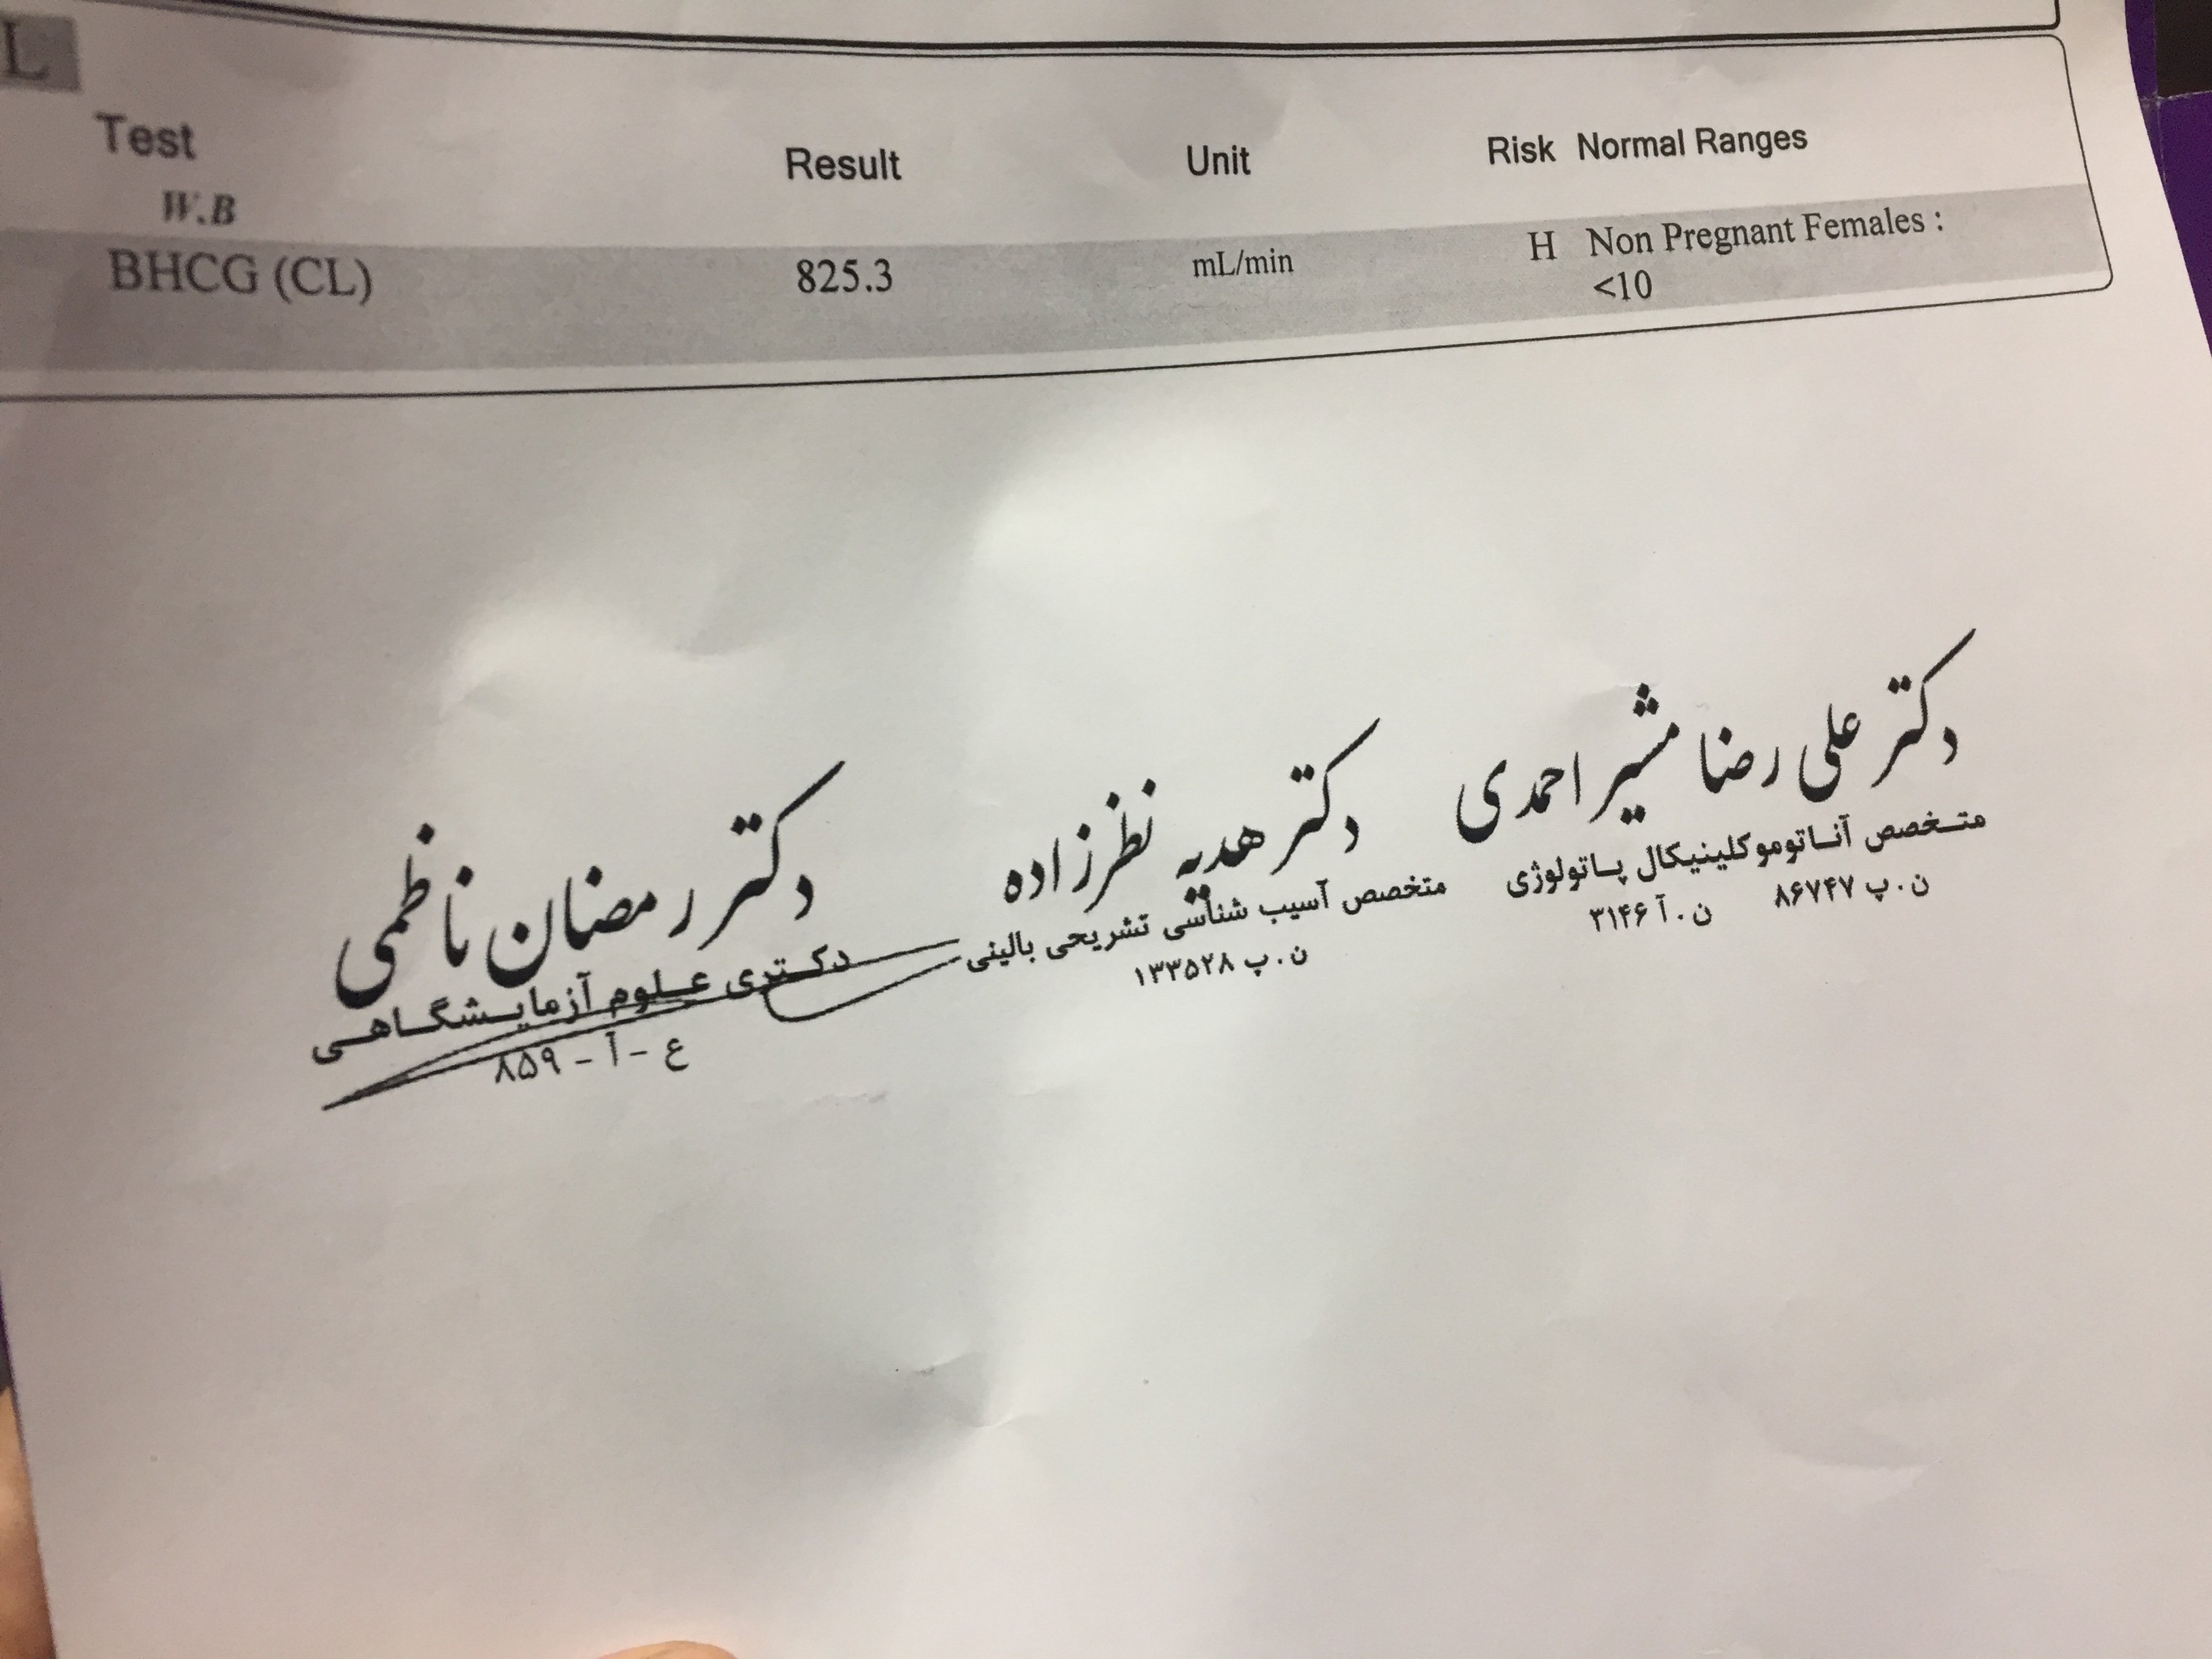 L
Test Result Unit Risk Normal Ranges
W.B
BHCG (CL) 825.3 mL/min H Non Pregnant Females :
<10
دکتر علی رضا مشیر احمدی
متخصص آناتوموکلینیکال پاتولوژی
ن.پ ۸۶۷۴۷ ن.آ ۳۱۴۶
دکتر هدیه نظرزاده
متخصص آسیب شناسی تشریحی بالینی
ن.پ ۱۳۳۵۲۸
دکتر رمضان ناظمی
دکتری علوم آزمایشگاهی
ع - آ - ۸۵۹